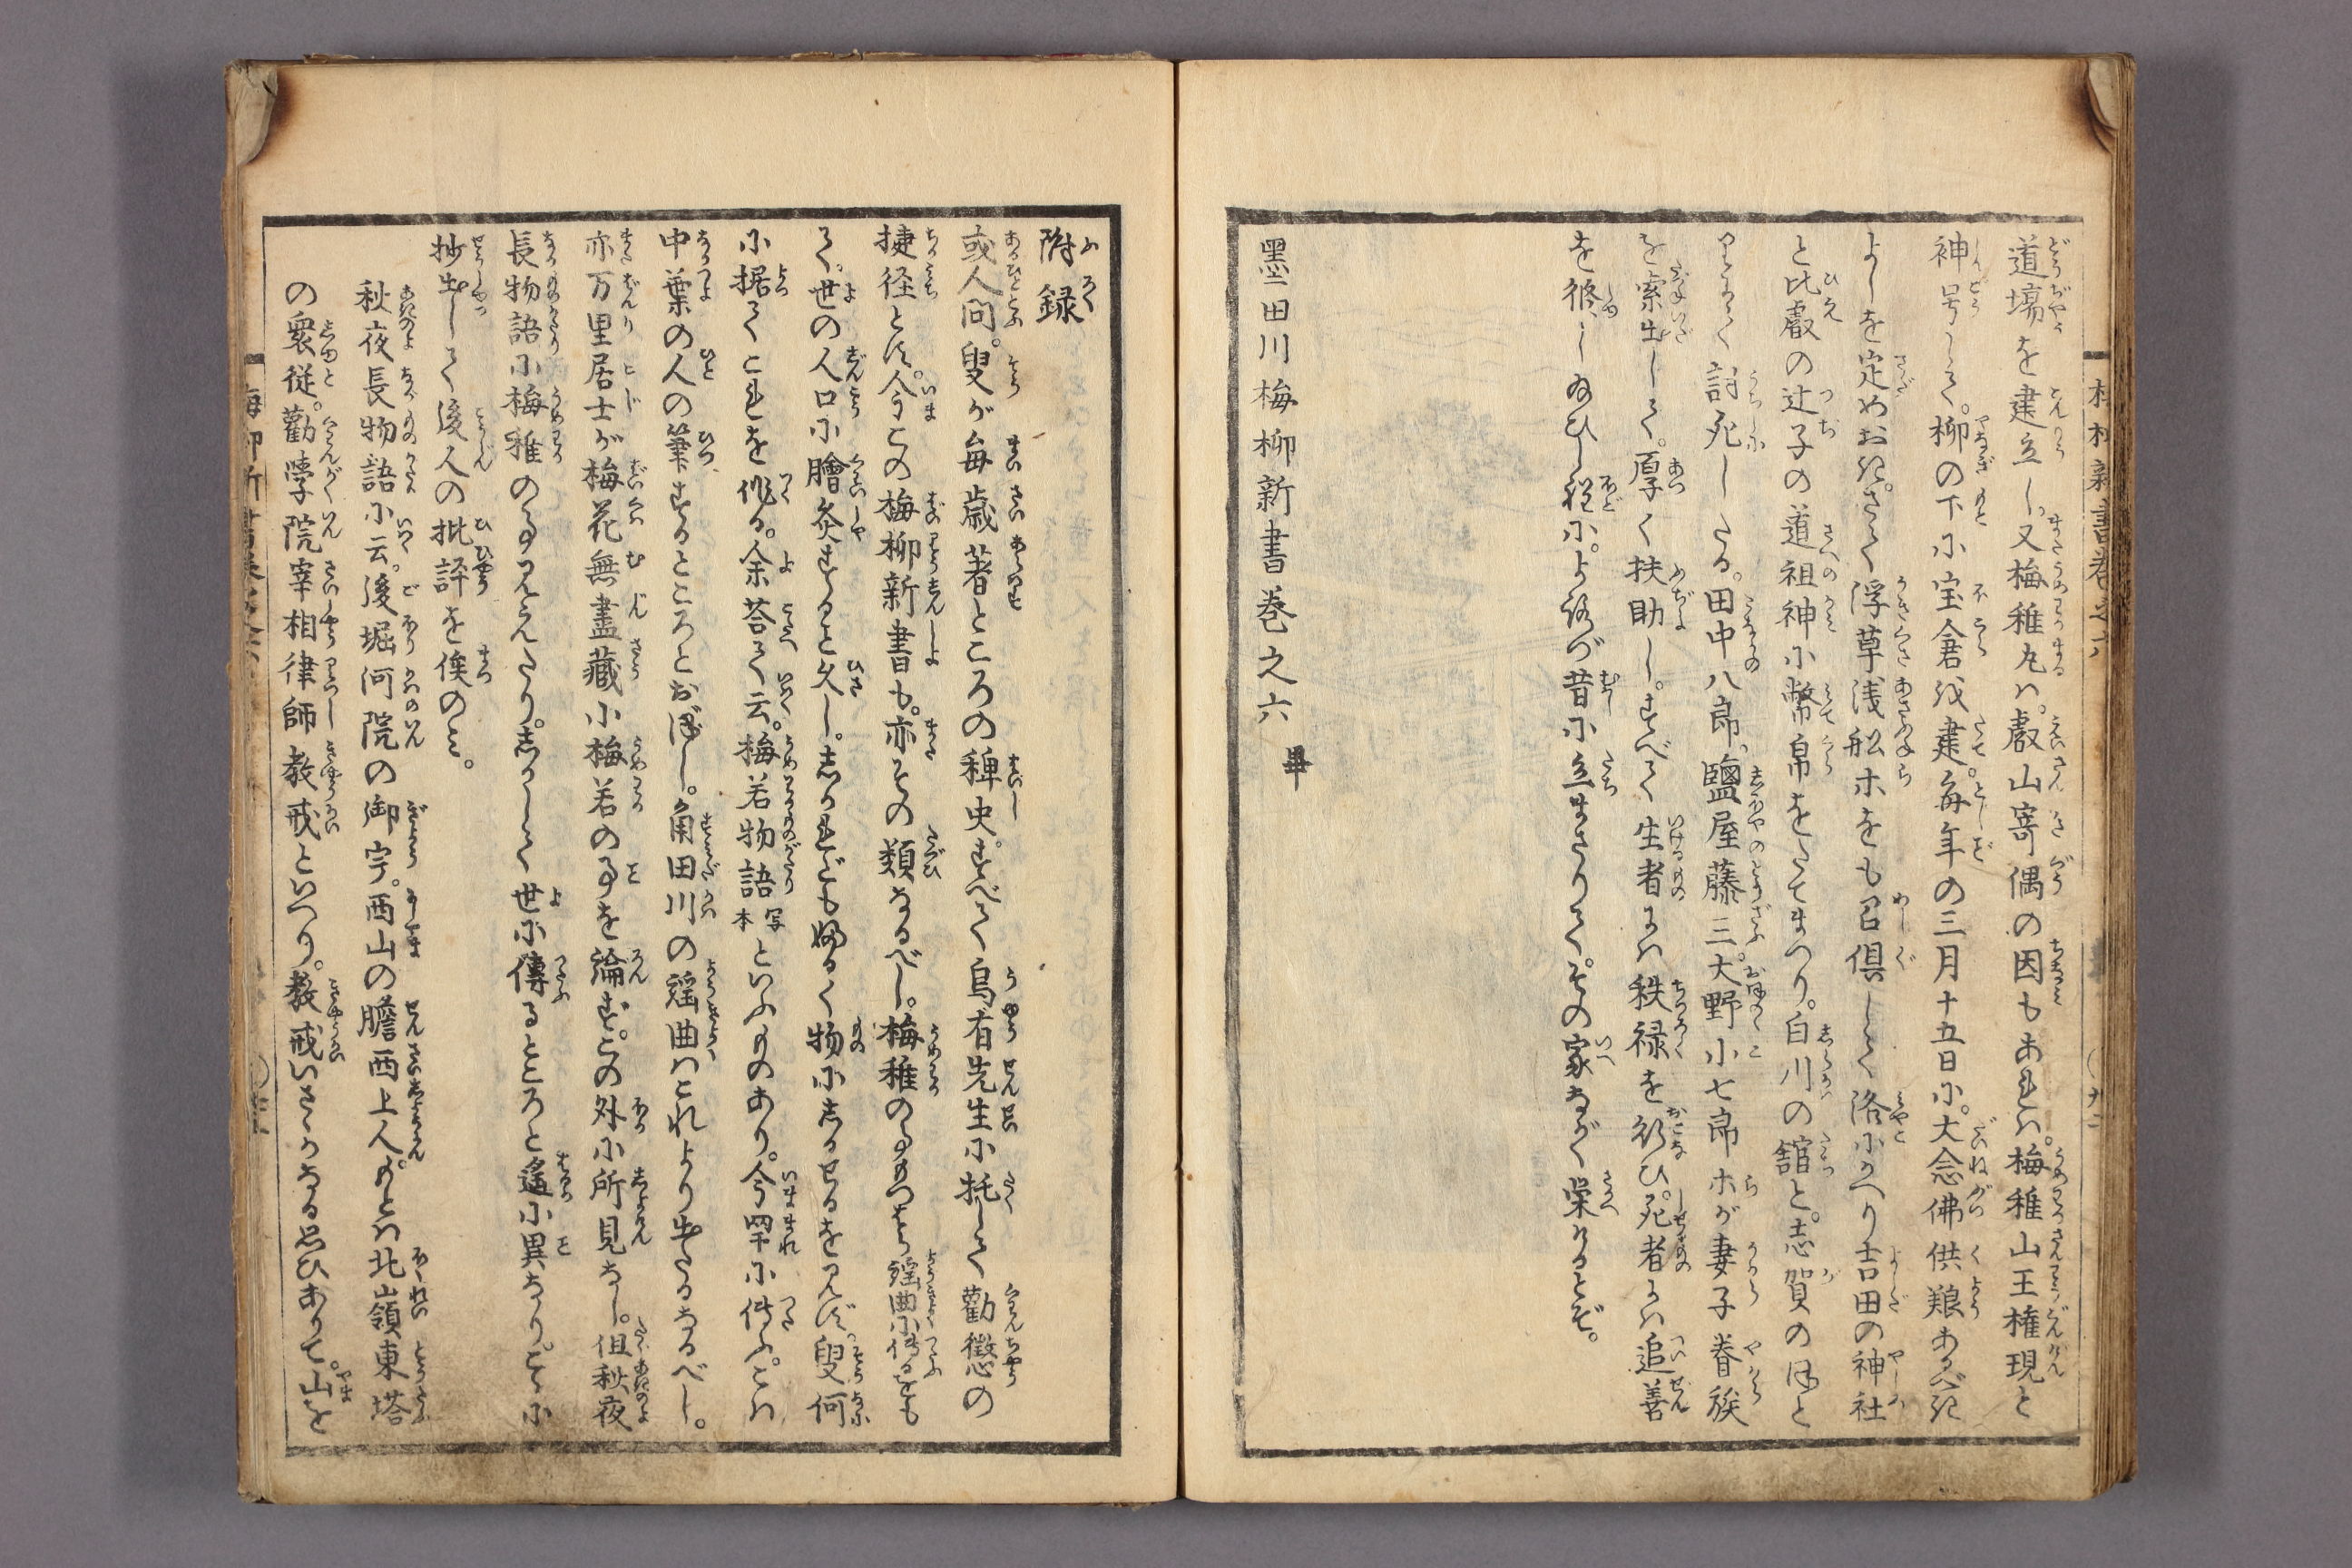 道場を建立し。又梅稚丸は。叡山寄偶の因もあれは。梅稚山王権現と
神号して。柳の下に宝倉を建。毎年の三月十五日に。大念佛供粮あるべき
よしを定めおき。さて浮草浅舩ホをも召倶して洛にかへり吉田の神社
と比叡の辻子の道祖神に幣帛をたてまつり。白川の舘と。志賀のほと
りにて討死したる。田中八郎。鹽屋藤三。大野小七郎ホが妻子眷族
を索出して。厚く扶助し。すべて生者には秩禄を行ひ。死者には追善
を脩し給ひし程に。よろづ昔に立まさりて。その家ながく栄けるとぞ。
墨田川梅柳新書巻之六 畢
附録
或人問。叟が毎歳著ところの稗史。すべて烏有先生に托して勸懲の
捷径とす。今この梅柳新書も。亦その類なるべし。梅稚の事もつはら謡曲に傳るをも
て。世の人口に膾炙すること久し。しかれども婦るく物にしるせるを見ず。叟何
に据てこれを作る。余荅て云。梅若物語写本といふものあり。今罕に傳ふ。こは
中葉の人の筆するところとおぼし。角田川の謡曲はこれより出たるなるべし。
亦万里居士が梅花無盡藏に梅若の事を論ず。この外に所見なし。但秋夜
長物語に梅稚の事見えたり。しかして世に傳るところと遙に異なり。こゝに
抄出して後人の批評を俟のみ。
秋夜長物語に云。後堀河院の御宇。西山の膽西上人。もとは北嶺東塔
の衆徒。勸學院宰相律師教戒といへり。教戒いさゝかなる思ひありて。山を